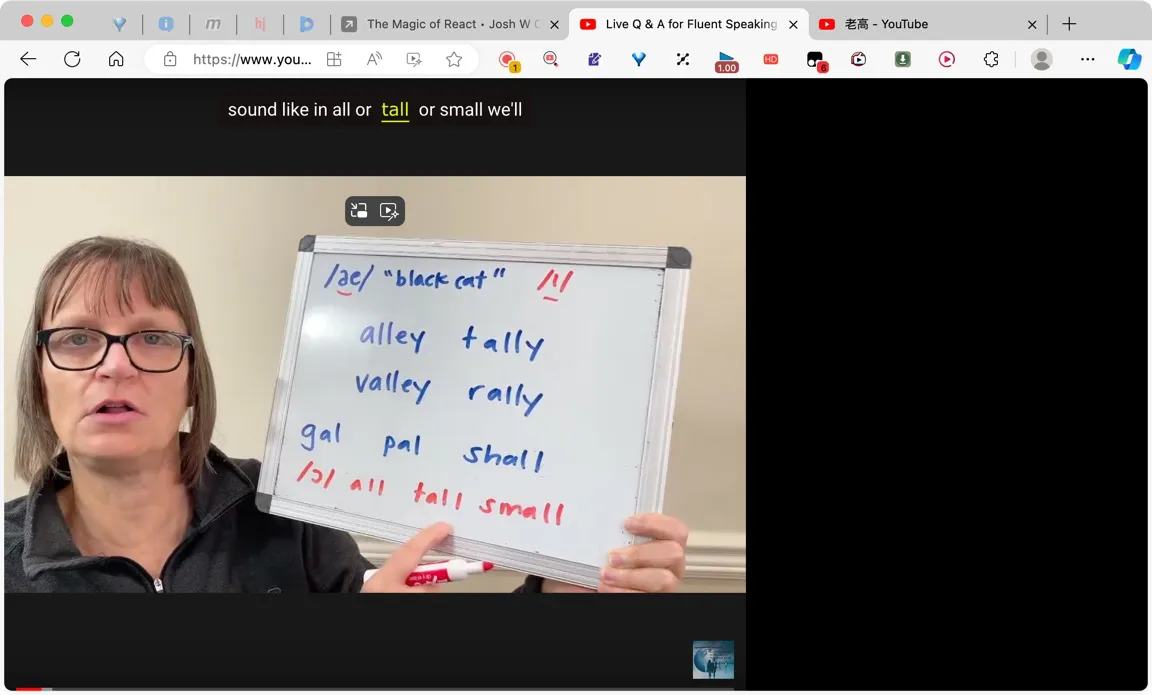 The Magic of React • Josh W C
Live Q & A for Fluent Speaking
老高 - YouTube
https://www.you...
1
1.00
HD
6
sound like in all or tall or small we'll
/æ/ "black cat" /ɪ/
alley tally
valley rally
gal pal shall
/ɔ/ all tall small